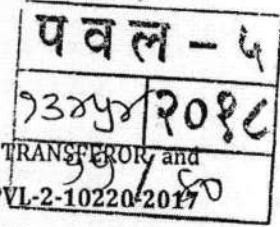 पवल - ५
१३२५४ २०१८
TRANSFEROR, and
PVL-2-10220-2017
/ ८०